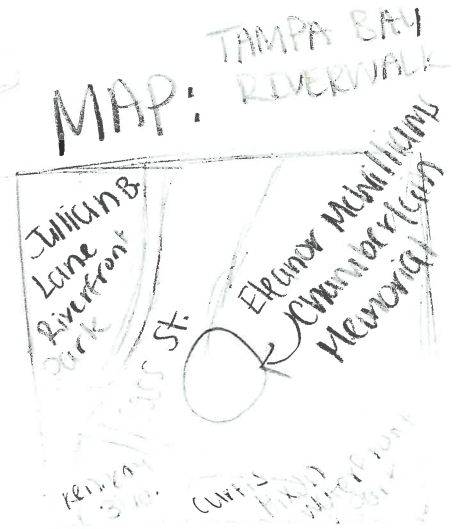 MAP:
TAMPA BAY
RIVERWALK
Jullian B.
Lane
Riverfront
park
Eleanor McWilliams
Chamberlain
Memorial
St.
Curtis
Hixon
Waterfront